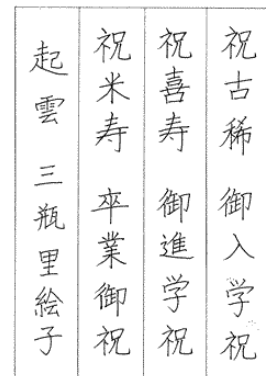 祝古稀 御入学祝
祝喜寿 御進学祝
祝米寿 卒業御祝
起雲 三瓶里絵子